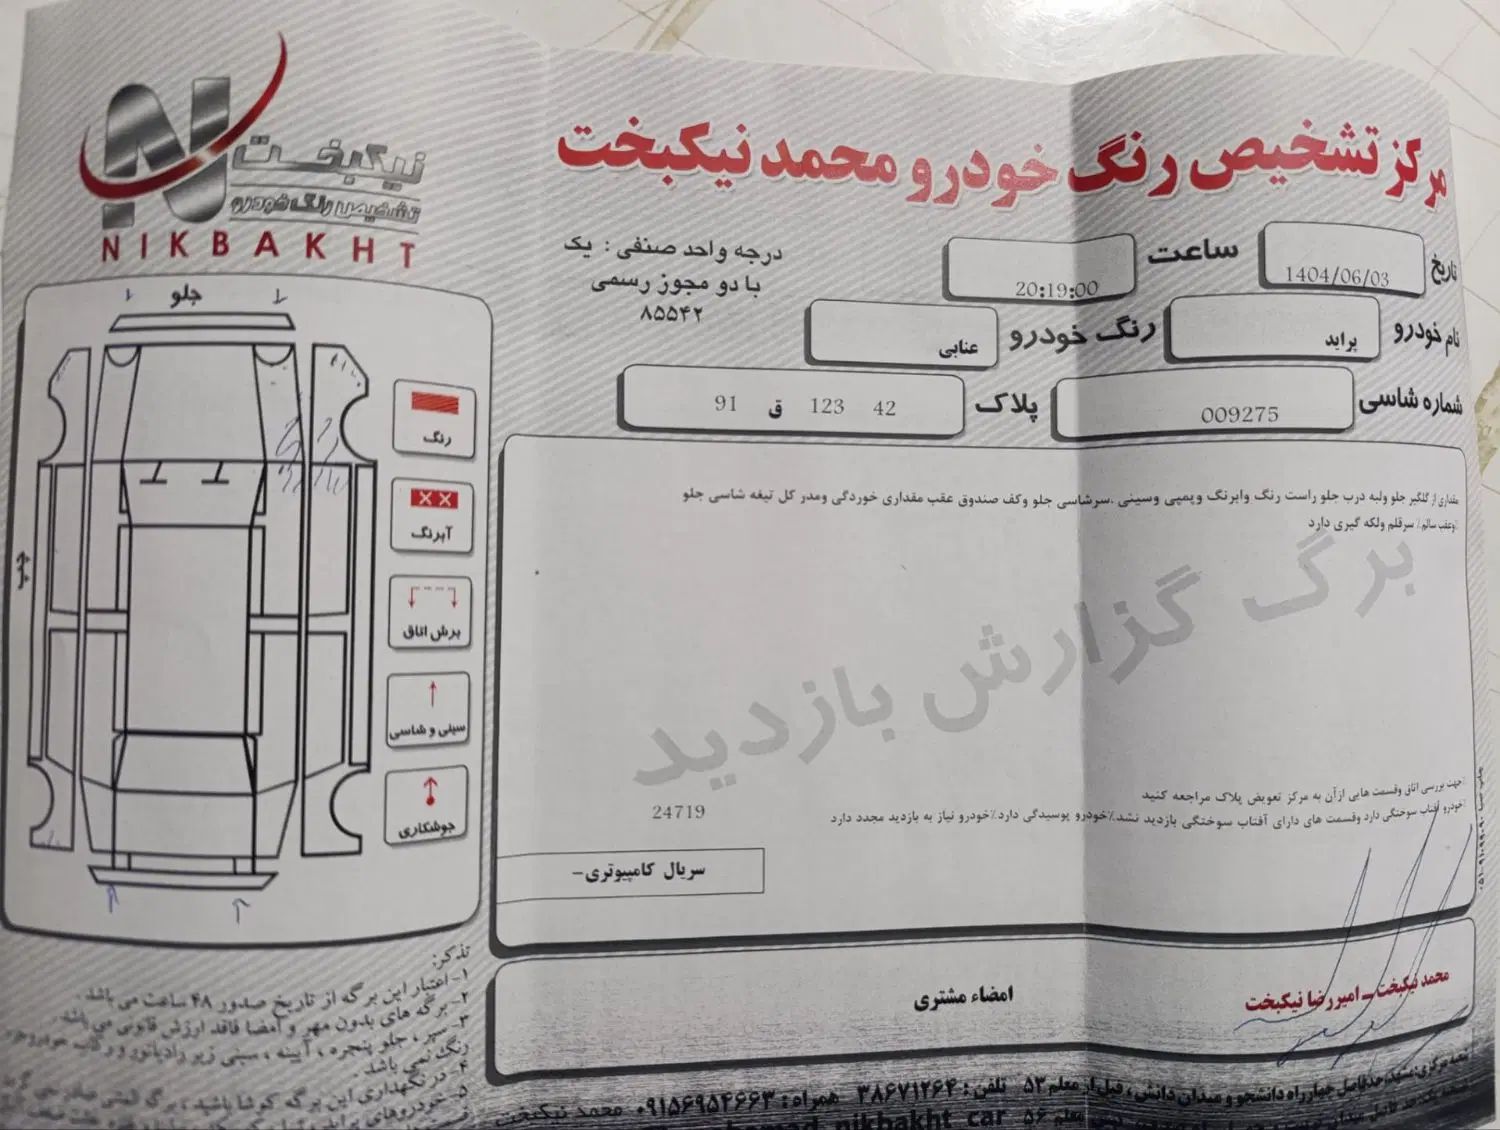 مرکز تشخیص رنگ خودرو محمد نیکبخت
نیکبخت
تشخیص رنگ خودرو
NIKBAKHT
تاریخ 1404/06/03
ساعت 20:19:00
درجه واحد صنفی : یک
با دو مجوز رسمی
۸۵۵۴۲
نام خودرو پراید
رنگ خودرو عنابی
شماره شاسی 009275
پلاک 42 123 ق 91
جلو
چپ
رنگ
آبرنگ
برش اتاق
سینی و شاسی
جوشکاری
مقداری از گلگیر جلو ولبه درب جلو راست رنگ وابرنگ وپمپی وسینی .سرشاسی جلو وکف صندوق عقب مقداری خوردگی ومدر کل تیغه شاسی جلو
وعقب سالم٪ سرقلم ولکه گیری دارد
برگ گزارش بازدید
٪جهت بررسی اتاق وقسمت هایی ازآن به مرکز تعویض پلاک مراجعه کنید
٪خودرو آفتاب سوختگی دارد وقسمت های دارای آفتاب سوختگی بازدید نشد.٪خودرو پوسیدگی دارد٪خودرو نیاز به بازدید مجدد دارد
24719
سریال کامپیوتری-
محمد نیکبخت ـ امیررضا نیکبخت
امضاء مشتری
تذکر:
۱- اعتبار این برگه از تاریخ صدور ۴۸ ساعت می باشد.
۲- برگه های بدون مهر و امضا فاقد ارزش قانونی می باشد.
۳- سپر، جلو پنجره، آیینه، سینی زیر رادیاتور و رکاب خودرو
رنگ نمی باشد.
۴- در نگهداری این برگه کوشا باشید،
۵- خودروهای
شعبه مرکزی: مشهد، حدفاصل چهارراه دانشجو و میدان دانش، قبل از معلم ۵۳ تلفن: ۳۸۶۷۱۲۶۴ همراه: ۰۹۱۵۶۹۵۴۶۶۳ محمد نیکبخت
nikbakht_car
معلم ۵۶